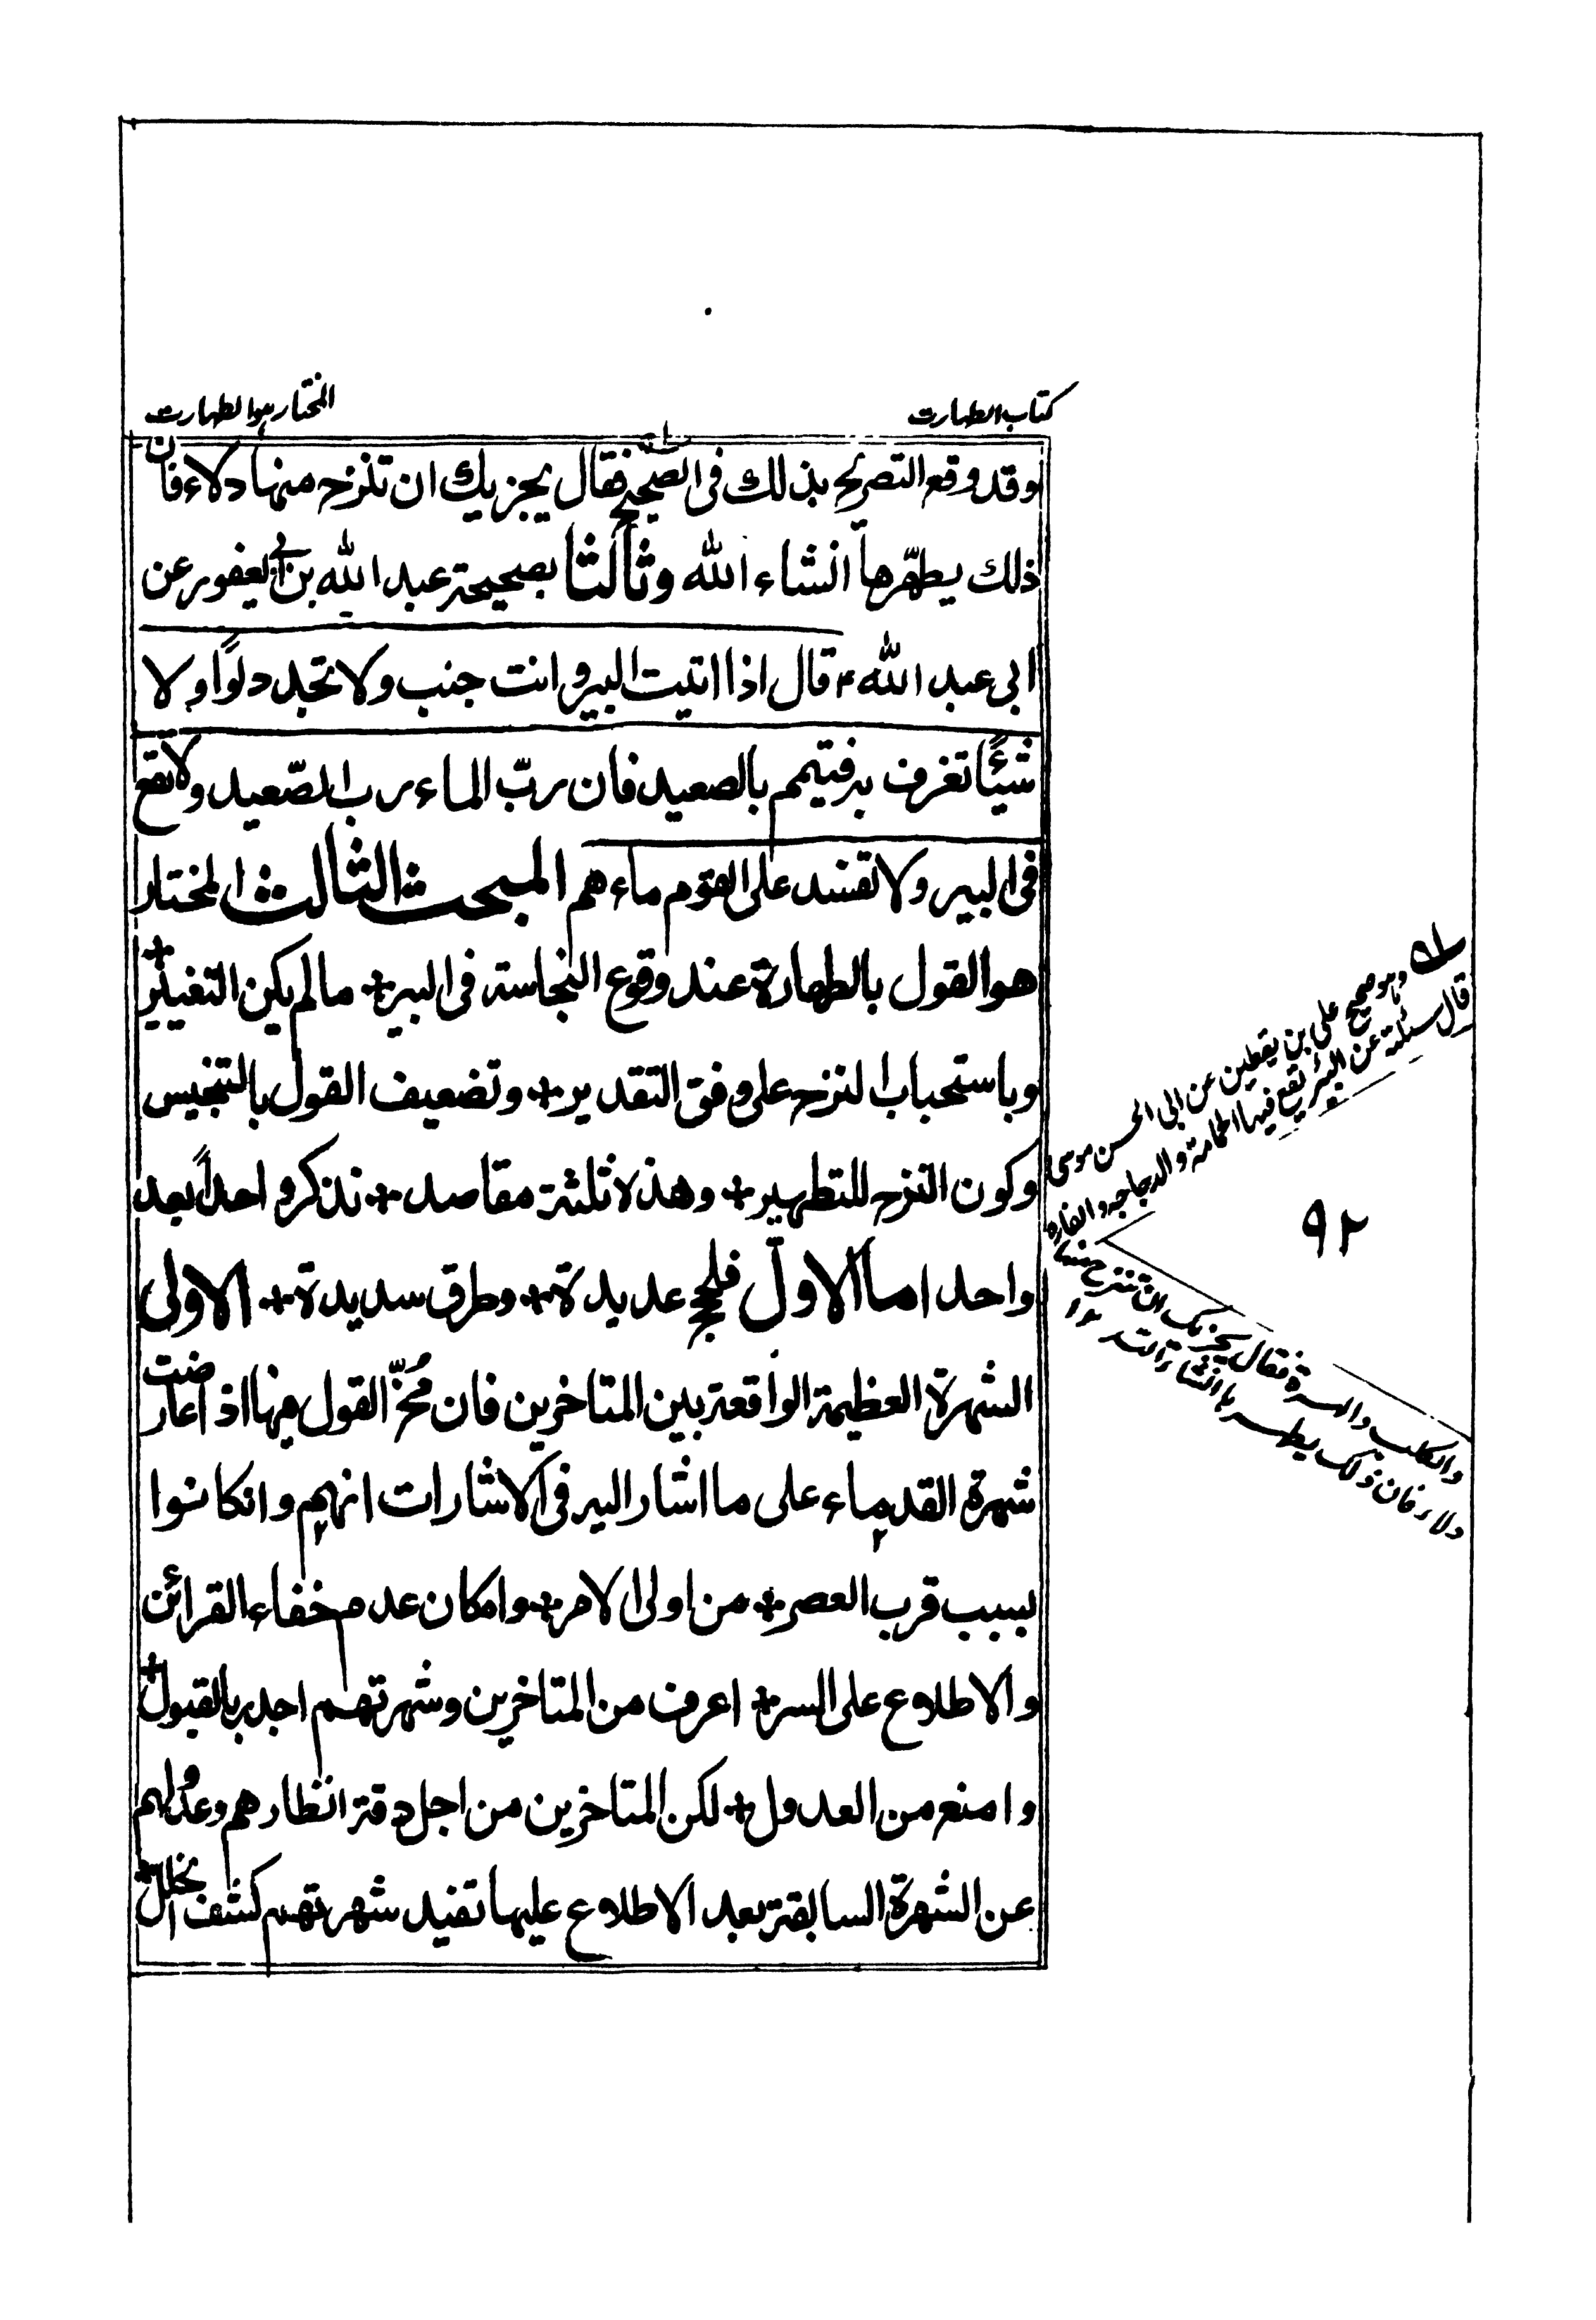 كتاب الطهارت
المختار هو الطهارت
وقد وقع التصريح بذلك فى الصحيح فقال يجزيك ان تنزح منها دلاء فان
ذلك يطهّرها انشاء الله وثالثا بصحيحة عبد الله بن ابى يعفور عن
ابى عبد الله ؑ قال اذا اتيت البير وانت جنب ولا تجد دلوًا ولا
شيئًا تغرف به فتيمم بالصعيد فان ربّ الماء رب الصّعيد ولا تقع
فى البير ولا تفسد على القوم ماءهم المبحث الثالث المختار
هو القول بالطهارة عند وقوع النجاسة فى البير+ ما لم يكن التغيير+
وباستحباب النزح على وفق التقدير+ وتضعيف القول بالتنجيس
وكون النزح للتطهير+ وهذه ثلثة مقاصد+ نذكر واحداً بعد
واحد اما الاوّل فلحجج عديدة+ وطرق سديدة+ الاولى
الشهرة العظيمة الواقعة بين المتاخرين فان مُخّ القول منها اذا عارضت
شهرة القدماء على ما اشار اليه فى الاشارات انهم وانكانوا
بسبب قرب العصر+ من اولى الامر+ وامكان عدم خفاء القرائن
والاطلاع على السر+ اعرف من المتاخرين وشهرتهم اجدر بالقبول+
وامنع من العدول+ لكن المتاخرين من اجل دقة انظارهم وعدولهم
عن الشهرة السابقة بعد الاطلاع عليها تفيد شهرتهم كشف
وهو صحيح على بن يقطين عن ابى الحسن موسى
قال سئلته عن البئر يقع فيها الحمامة والدجاجه والفاره
والكلب والهرة فقال يجزيك ان تنزح منها
دلاء فان ذلك يطهرها انشاء الله ١٢
٩٢